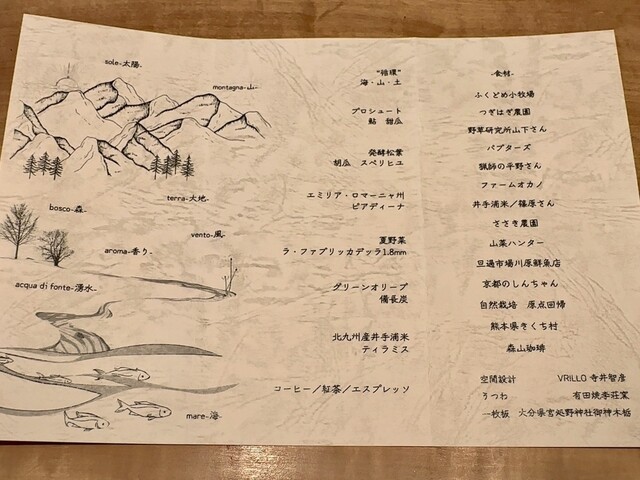 sole-太陽-
montagna-山-
terra-大地-
bosco-森-
vento-風-
aroma-香り-
acqua di fonte-湧水-
mare-海-
"循環"
海・山・土
プロシュート
鮎 甜瓜
発酵松葉
胡瓜 スベリヒユ
エミリア・ロマーニャ州
ピアディーナ
夏野菜
ラ・ファブリッカデッラ1.8mm
グリーンオリーブ
備長炭
北九州産井手浦米
ティラミス
コーヒー／紅茶／エスプレッソ
-食材-
ふくどめ小牧場
つぎはぎ農園
野草研究所山下さん
バブターズ
猟師の平野さん
ファームオカノ
井手浦米／篠原さん
ささき農園
山菜ハンター
旦過市場川原鮮魚店
京都のしんちゃん
自然栽培 原点回帰
熊本県きくち村
森山珈琲
空間設計 VRILLO 寺井智彦
うつわ 有田焼李荘窯
一枚板 大分県宮処野神社御神木栃